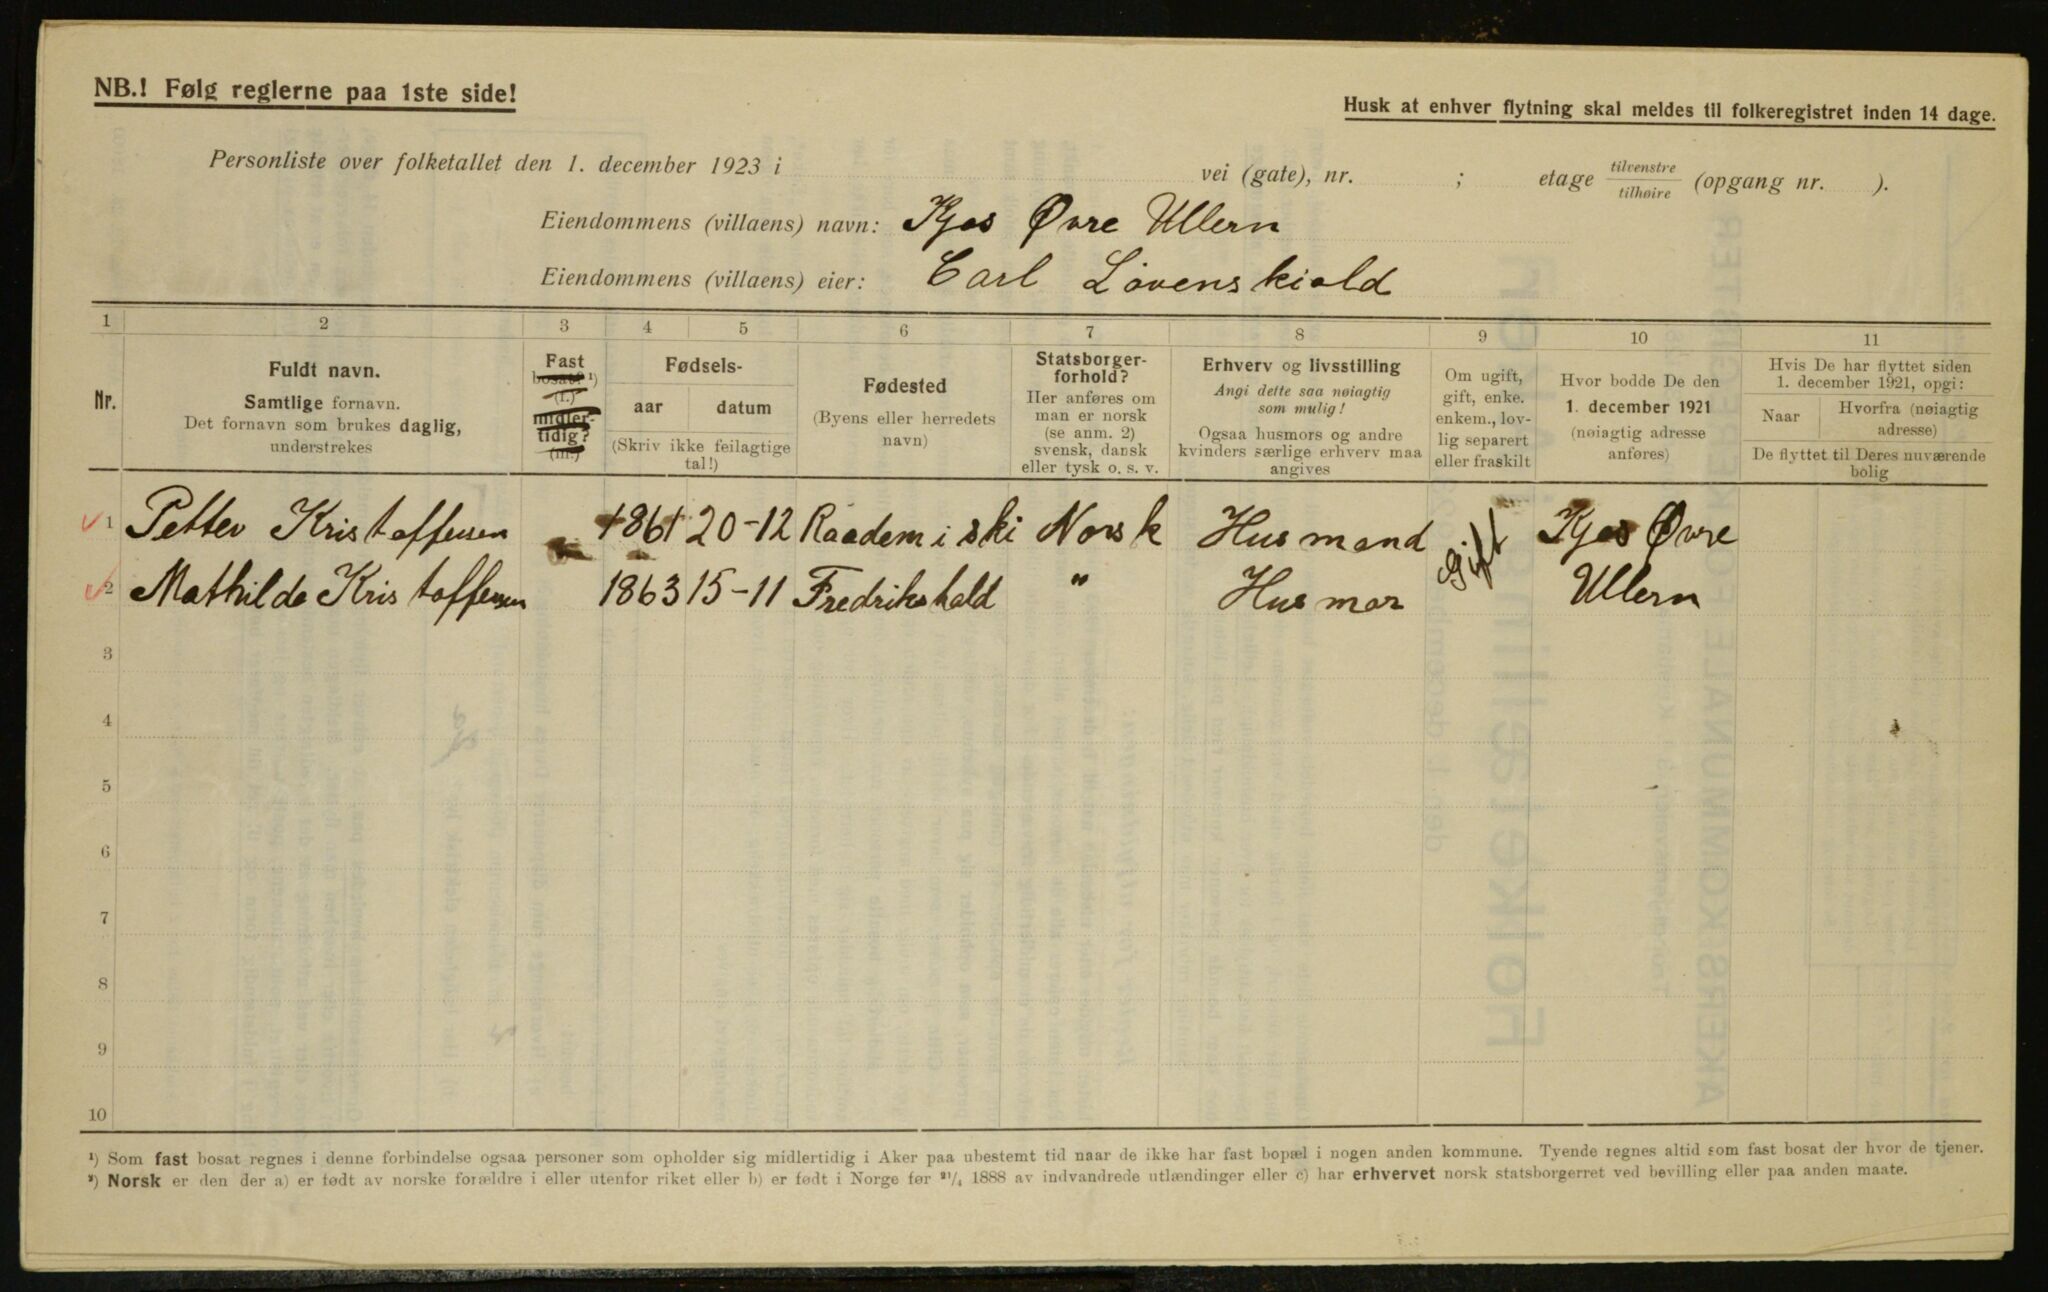 NB.! Følg reglerne paa 1ste side!
Husk at enhver flytning skal meldes til folkeregistret inden 14 dage.
Personliste over folketallet den 1. december 1923 i vei (gate), nr. ; etage tilvenstre tilhøire (opgang nr. ).
Eiendommens (villaens) navn: Kjos Øvre Ullern
Eiendommens (villaens) eier: Carl Lövenskiold
1 2 3 4 5 6 7 8 9 10 11
Nr.
Fuldt navn.
Samtlige fornavn.
Det fornavn som brukes daglig,
understrekes
Fast
bosat? ¹)
(f.)
midler-
tidig?
(m.)
Fødsels-
aar datum
(Skriv ikke feilagtige
tal!)
Fødested
(Byens eller herredets
navn)
Statsborger-
forhold?
Her anføres om
man er norsk
(se anm. 2)
svensk, dansk
eller tysk o. s. v.
Erhverv og livsstilling
Angi dette saa nøiagtig
som mulig!
Ogsaa husmors og andre
kvinders særlige erhverv maa
angives
Om ugift,
gift, enke.
enkem., lov-
lig separert
eller fraskilt
Hvor bodde De den
1. december 1921
(nøiagtig adresse
anføres)
Hvis De har flyttet siden
1. december 1921, opgi:
Naar
Hvorfra (nøiagtig
adresse)
De flyttet til Deres nuværende
bolig
1 Petter Kristoffersen 1861 20-12 Raadem i ski Norsk Husmand Gift Kjos Øvre
2 Mathilde Kristoffersen 1863 15-11 Fredrikshald " Husmor Ullern
3
4
5
6
7
8
9
10
¹) Som fast bosat regnes i denne forbindelse ogsaa personer som opholder sig midlertidig i Aker paa ubestemt tid naar de ikke har fast bopæl i nogen anden kommune. Tyende regnes altid som fast bosat der hvor de tjener.
²) Norsk er den der a) er født av norske forældre i eller utenfor riket eller b) er født i Norge før ²¹/₄ 1888 av indvandrede utlændinger eller c) har erhvervet norsk statsborgerret ved bevilling eller paa anden maate.